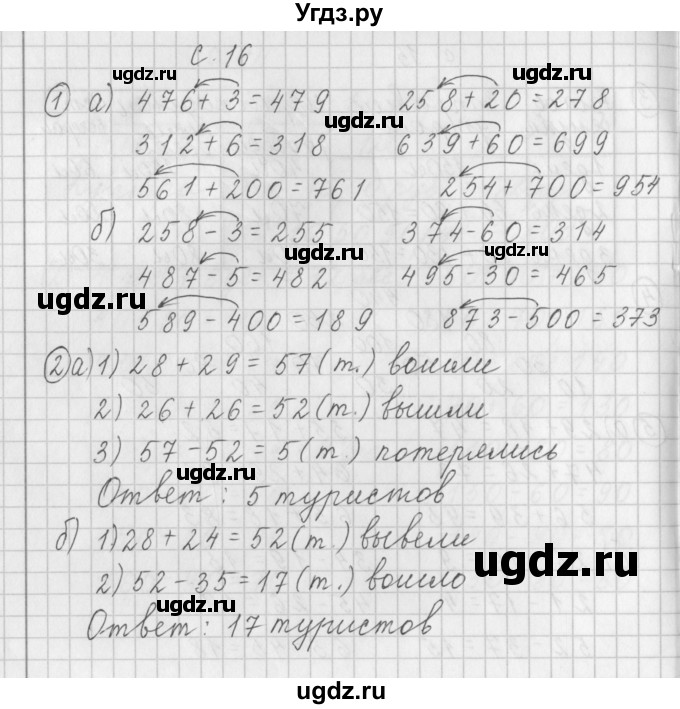 Угдз.ру
с. 16
ugdz.ru
1 а) 476 + 3 = 479 258 + 20 = 278
ugdz.ru ugdz.ru
312 + 6 = 318 639 + 60 = 699
561 + 200 = 761 254 + 700 = 954
ugdz.ru
б) 258 - 3 = 255 374 - 60 = 314
487 - 5 = 482 495 - 30 = 465
ugdz.ru ugdz.ru
589 - 400 = 189 873 - 500 = 373
2 а) 1) 28 + 29 = 57 (т.) вошли
ugdz.ru
2) 26 + 26 = 52 (т.) вышли
3) 57 - 52 = 5 (т.) потерялись
ugdz.ru
Ответ: 5 туристов
б) 1) 28 + 24 = 52 (т.) вывели
ugdz.ru
2) 52 - 35 = 17 (т.) вошло
ugdz.ru
Ответ: 17 туристов
ugdz.ru
ugdz.ru